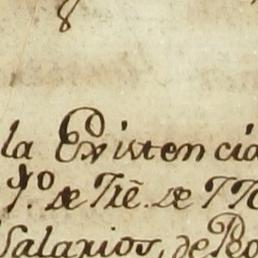 8
la Existencia
1.º de Trē. de 170
Salarios, de Peo